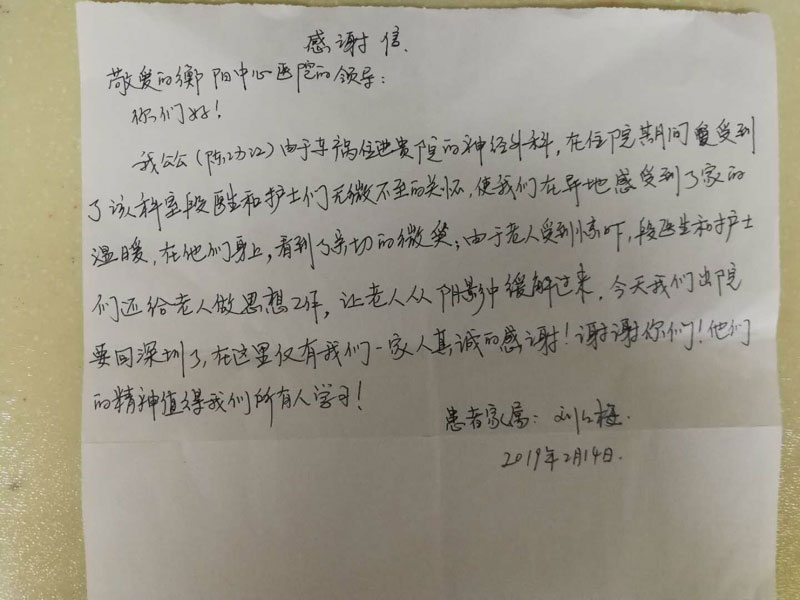 感谢信.
敬爱的衡阳中心医院的领导：
你们好！
我公公（陈）由于车祸住进贵院的神经外科，在住院期间受到
了该科室段医生和护士们无微不至的关怀，使我们在异地感受到了家的
温暖，在他们身上，看到了亲切的微笑；由于老人受到惊吓，段医生和护士
们还给老人做思想工作，让老人从阴影中缓解过来，今天我们出院
要回深圳了，在这里仅有我们一家人真诚的感谢！谢谢你们！他们
的精神值得我们所有人学习！
患者家属：刘梅.
2019年2月14日.